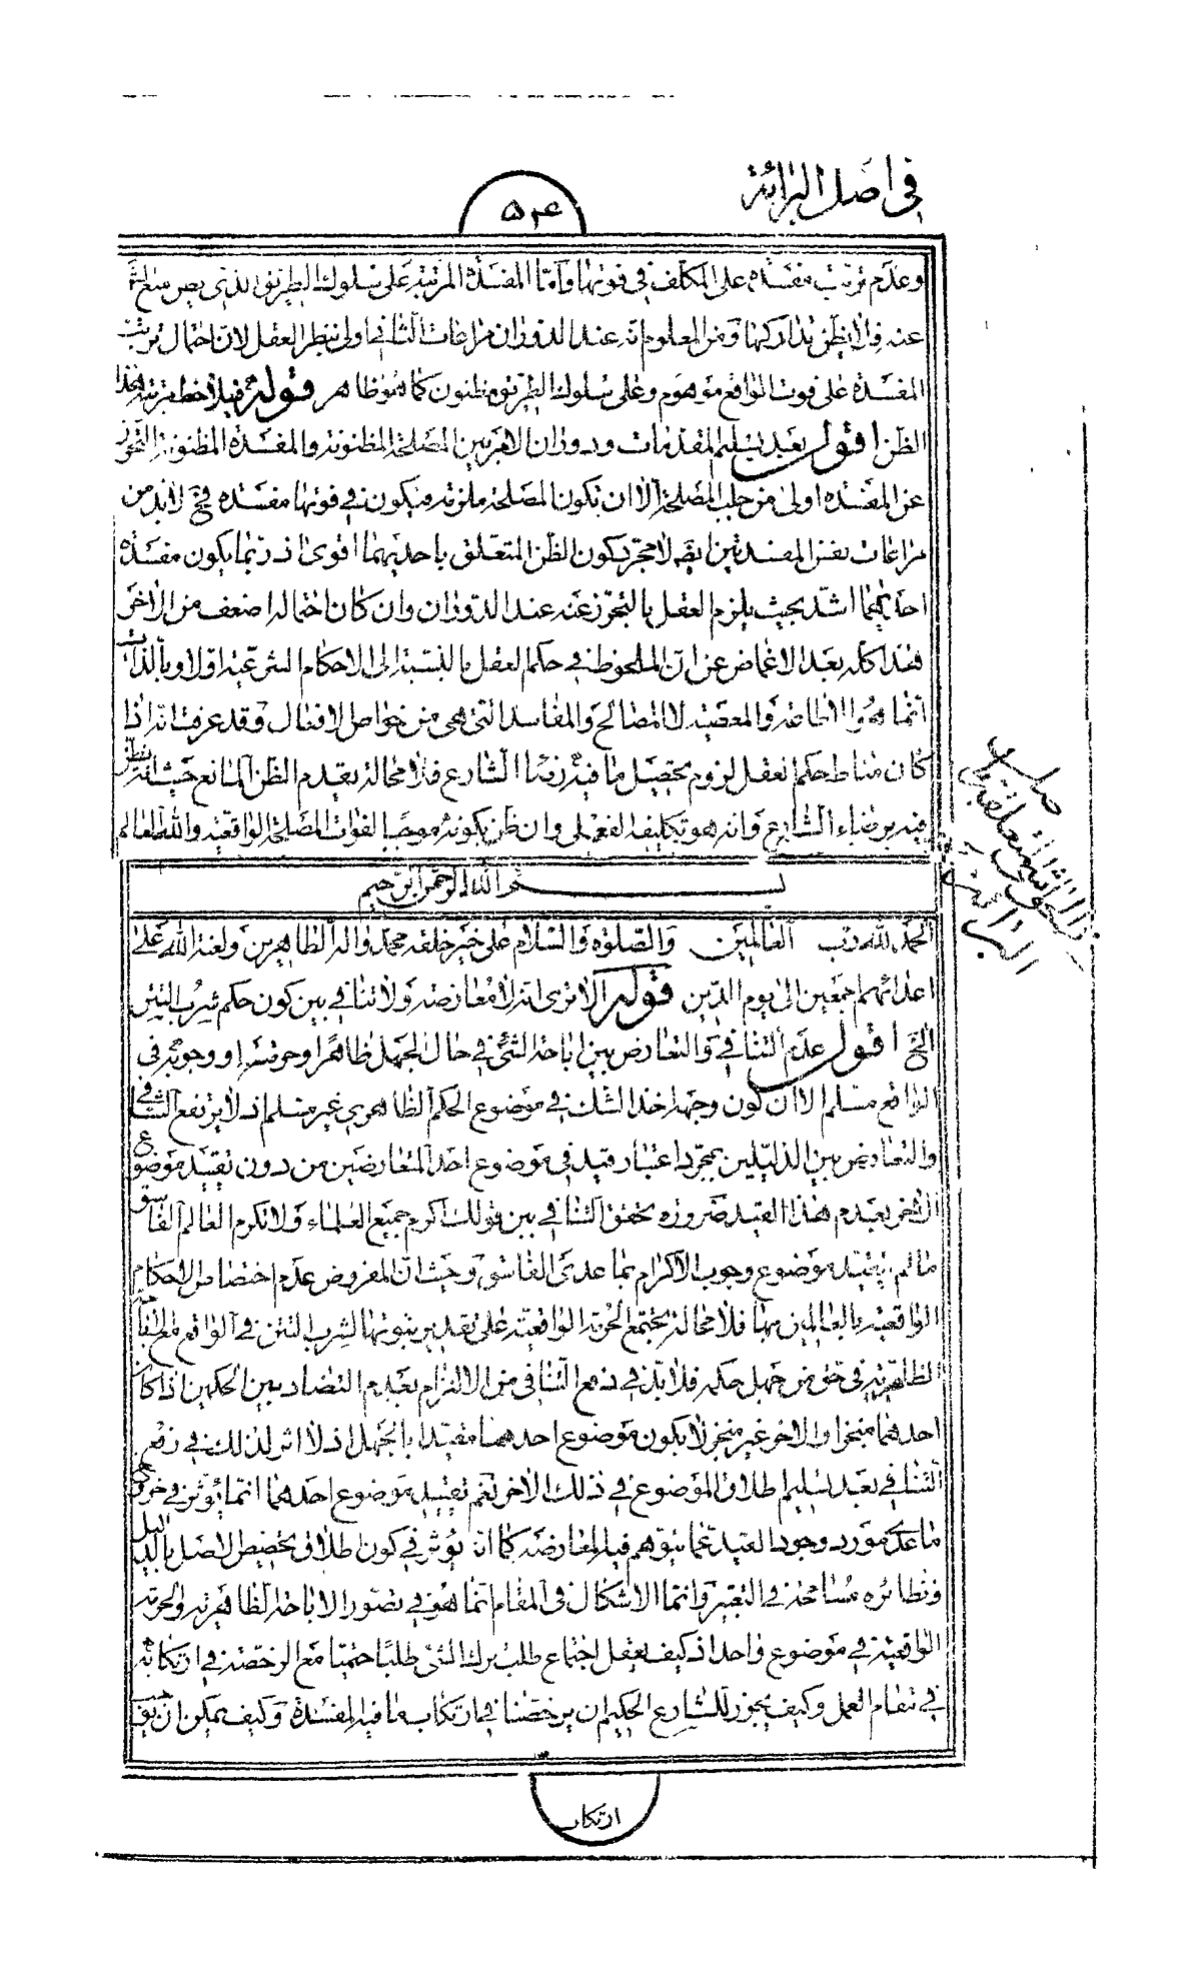 في اصل البرائة
۵۴
وعدم ترتب مفسدة على المكلف في فوتها وامّا المفسدة المرتبة على سلوك الطريق الذي
عنه فلا يظن بتداركها ومن المعلوم انّه عند الدوران مراعات الثاني اولى بنظر العقل لانّ احتمال ترتب
المفسدة على فوت الواقع موهوم وعلى سلوك الطريق مظنون كما هو ظاهر قوله فيلاحظ مرتبة هذا
الظن اقول بعد تسليم المقدمات ودوران الامر بين المصلحة المظنونة والمفسدة المظنونة التحرز
عن المفسدة اولى من جلب المصلحة الّا ان تكون المصلحة ملزمة فيكون في فوتها مفسدة فح لابد من
مراعات نفس المفسدتين ايضا لا مجرد كون الظن المتعلق باحديهما اقوى اذ ربّما يكون مفسدة
احديهما اشدّ بحيث يلزم العقل بالتحرز عنه عند الدوران وان كان احتماله اضعف من الاخر
هذا كلّه بعد الاغماض عن انّ الملحوظ في حكم العقل بالنسبة الى الاحكام الشرعية اولا وبالذات
انّما هو الاطاعة والمعصية لا المصالح والمفاسد التي هي من خواص الافعال وقد عرفت انّه اذا
كان مناط حكم العقل لزوم تحصيل ما فيه رضا الشارع فلا محالة يقدم الظن المانع حيث انه يظن
فيه برضاء الشارع وانه هو تكليفه الفعلي وان ظن بكونه موجبا لفوات المصلحة الواقعية والله العالم
بسم الله الرحمن الرحيم
الحمد لله رب العالمين والصلوة والسلام على خير خلقه محمد واله الطاهرين ولعنة الله على
اعدائهم اجمعين الى يوم الدين قوله الا ترى انه لا معارضة ولا تنافي بين كون حكم شرب التتن
الخ اقول عدم التنافي والتعارض بين اباحة الشئ في حال الجهل ظاهرا وحرمته او وجوبه في
الواقع مسلم الا ان كون وجهه اخذ الشك في موضوع الحكم الظاهري غير مسلم اذ لا يرتفع التنافي
والتعارض بين الدليلين بمجرد اعتبار قيد في موضوع احد المتعارضين من دون تقييد موضوع
الاخر بعدم هذا القيد ضرورة تحقق التنافي بين قولك اكرم جميع العلماء ولا تكرم العالم الفاسق
ما لم يقيد موضوع وجوب الاكرام بما عدى الفاسق وحيث انّ المفروض عدم اختصاص الاحكام
الواقعية بالعالمين بها فلا محالة يجتمع الحرمة الواقعية على تقدير ثبوتها لشرب التتن في الواقع مع الاباحة
الظاهرية في حق من جهل حكمه فلا بد في دفع التنافي من الالتزام بعدم التضاد بين الحكمين اذا كان
احدهما منجزا والاخر غير منجز لا بكون موضوع احدهما مقيدا بالجهل اذ لا اثر لذلك في رفع
التنافي بعد تسليم اطلاق الموضوع في ذلك الاخر نعم تقييد موضوع احدهما انّما يؤثر في خروج
ما عدى مورد وجود القيد عما يتوهم فيه المعارضة كما ان يؤثر في كون اطلاق تخصيص الاصل بالدليل
ونظائره مسامحة في التعبير وانّما الاشكال في المقام انّما هو في تصور الاباحة الظاهرية والحرمة
الواقعية في موضوع واحد اذ كيف يعقل اجتماع طلب ترك الشئ طلبا حتميا مع الرخصة في ارتكابه
في مقام العمل وكيف يجوز للشارع الحكيم ان يرخصنا في ارتكاب ما فيه المفسدة وكيف يمكن ان يق
ارتكاب